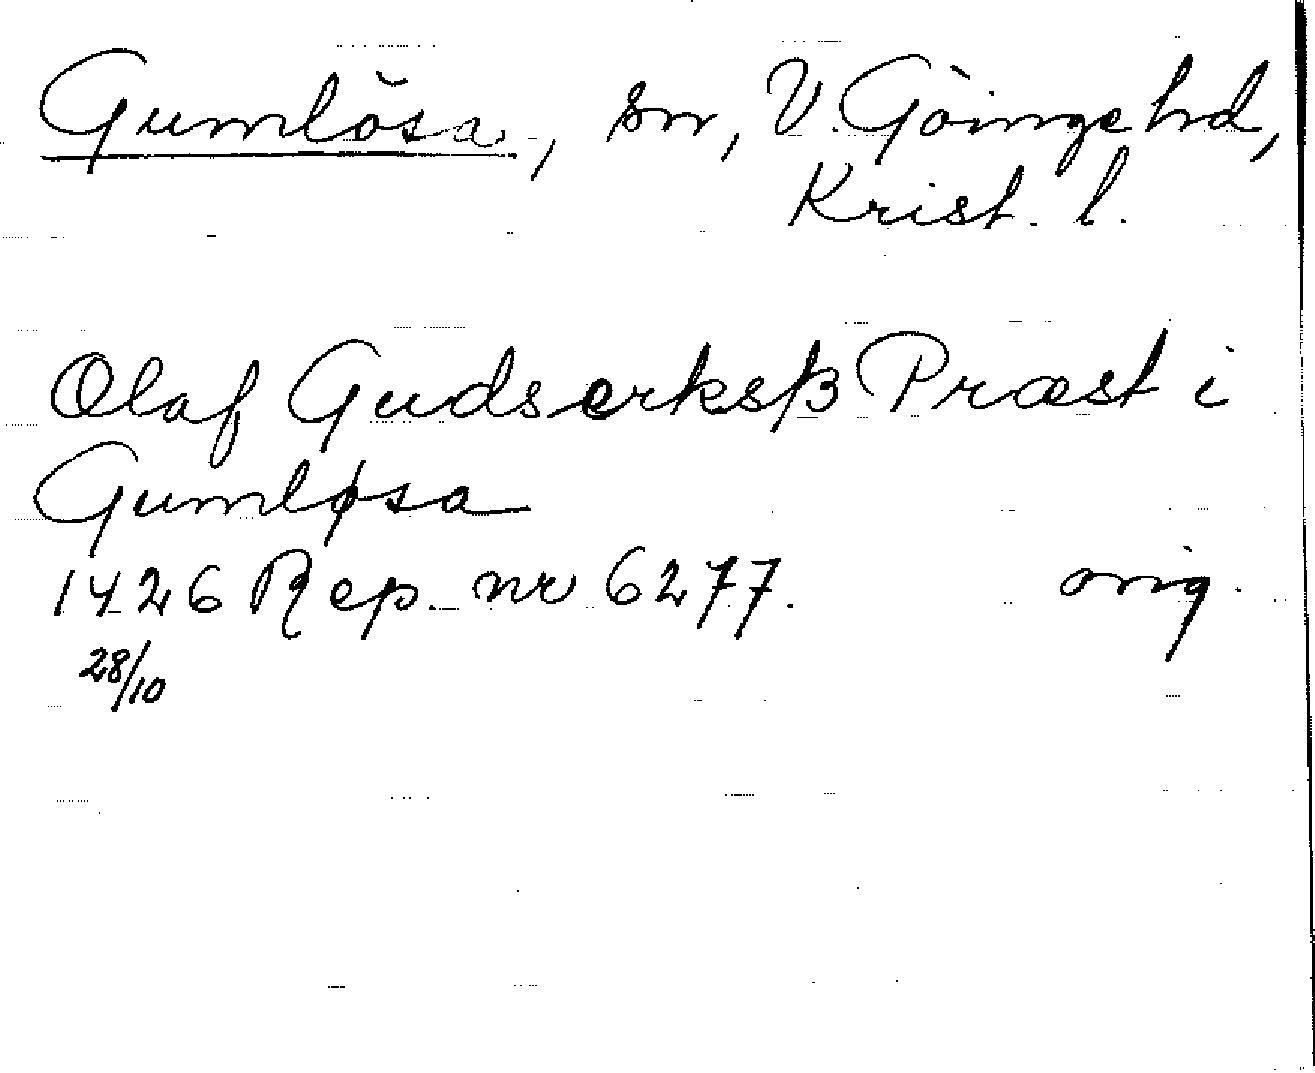 Gumlösa, sn, V. Göinge hd,
Krist. l.
Olaf Gudserksß Præst i
Gumløsa
1426 Rep. nr 6277. orig.
28/10